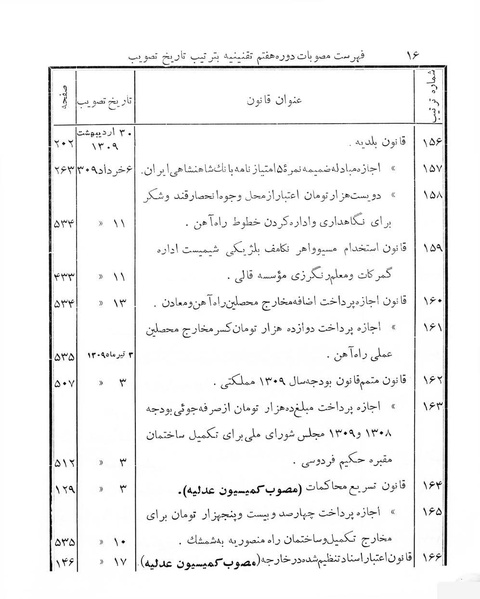 ۱۶ فهرست مصوبات دوره هفتم تقنینیه بترتیب تاریخ تصویب
شماره ترتیب عنوان قانون تاریخ تصویب صفحه
۱۵۶ قانون بلدیه . ۳۰ اردیبهشت ۱۳۰۹ ۲۰۲
۱۵۷ » اجازه مبادله ضمیمه نمره ۵ امتیاز نامه بانك شاهنشاهی ایران. ۶ خرداد ۳۰۹ ۲۶۳
۱۵۸ » دویست هزار تومان اعتبار از محل وجوه انحصار قند و شکر
برای نگاهداری و اداره کردن خطوط راه آهن . ۱۱ » ۵۳۴
۱۵۹ قانون استخدام مسیو واهر نکامف بلژیکی شیمیست اداره
گمرکات و معلم رنگرزی مؤسسه قالی . ۱۱ » ۴۳۳
۱۶۰ قانون اجازه پرداخت اضافه مخارج محصلین راه آهن و معادن . ۱۳ » ۵۳۴
۱۶۱ » اجازه پرداخت دوازده هزار تومان کسر مخارج محصلین
عملی راه آهن . ۳ تیر ماه ۱۳۰۹ ۵۳۵
۱۶۲ قانون متمم قانون بودجه سال ۱۳۰۹ مملکتی . ۳ » ۵۰۷
۱۶۳ » اجازه پرداخت مبلغ ده هزار تومان از صرفه جوئی بودجه
۱۳۰۸ و ۱۳۰۹ مجلس شورای ملی برای تکمیل ساختمان
مقبره حکیم فردوسی . ۳ » ۵۱۲
۱۶۴ قانون تسریع محاکمات (مصوب کمیسیون عدلیه). ۳ » ۱۲۹
۱۶۵ » اجازه پرداخت چهارصد و بیست و پنجهزار تومان برای
مخارج تکمیل و ساختمان راه منصوریه به شمشك . ۱۰ » ۵۳۵
۱۶۶ قانون اعتبار اسناد تنظیم شده در خارجه (مصوب کمیسیون عدلیه). ۱۷ » ۱۴۶